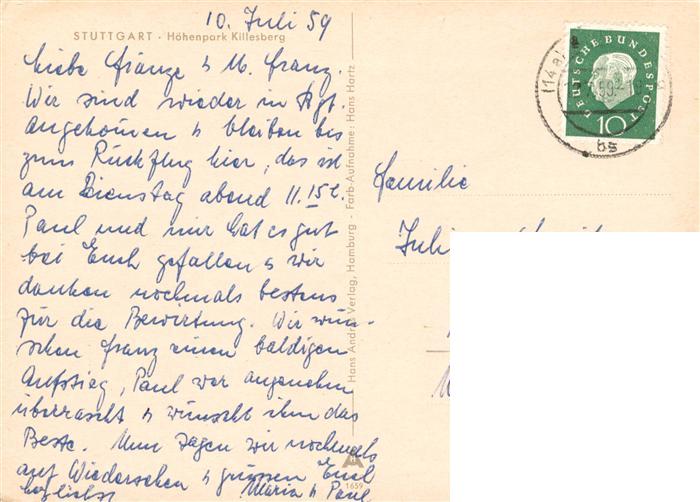 10. Juli 59
STUTTGART - Höhenpark Killesberg
Liebe Fränze u M. Franz.
Wir sind wieder in Stgt.
angekommen u bleiben bis
zum Rückflug hier, das ist
am Dienstag abend 11.15 h.
Paul und mir hat es gut
bei Euch gefallen u wir
danken nochmals bestens
für die Bewirtung. Wir wün-
schen Franz einen baldigen
Aufstieg, Paul war angenehm
überrascht u wünscht ihm das
Beste. Nun sagen wir nochmals
auf Wiedersehen u grüssen Euch
herzlichst Maria u Paul
Hans Andres Verlag, Hamburg - Farb-Aufnahme: Hans Hartz
1659
DEUTSCHE BUNDESPOST
10
(14a)
bs
Familie